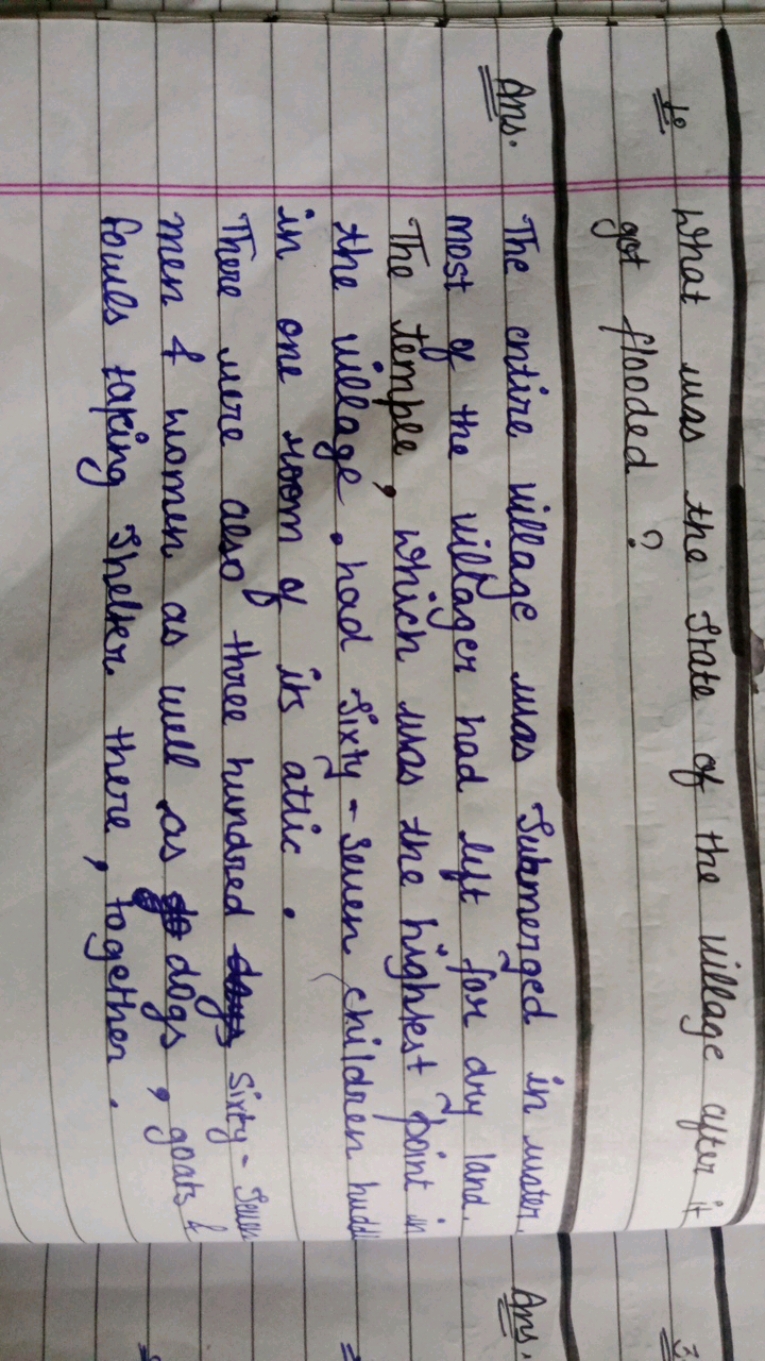 1. What was the State of the village after it
got flooded ?
Ans. The entire village was Submerged in water.
most of the villager had left for dry land.
The temple, which was the highest point in
the village, had Sixty-Seven children huddl
in one room of its attic.
There were also three hundred Sixty-Seven
men & women as well as dogs, goats &
fowls taking Shelter there, together.
Ans.